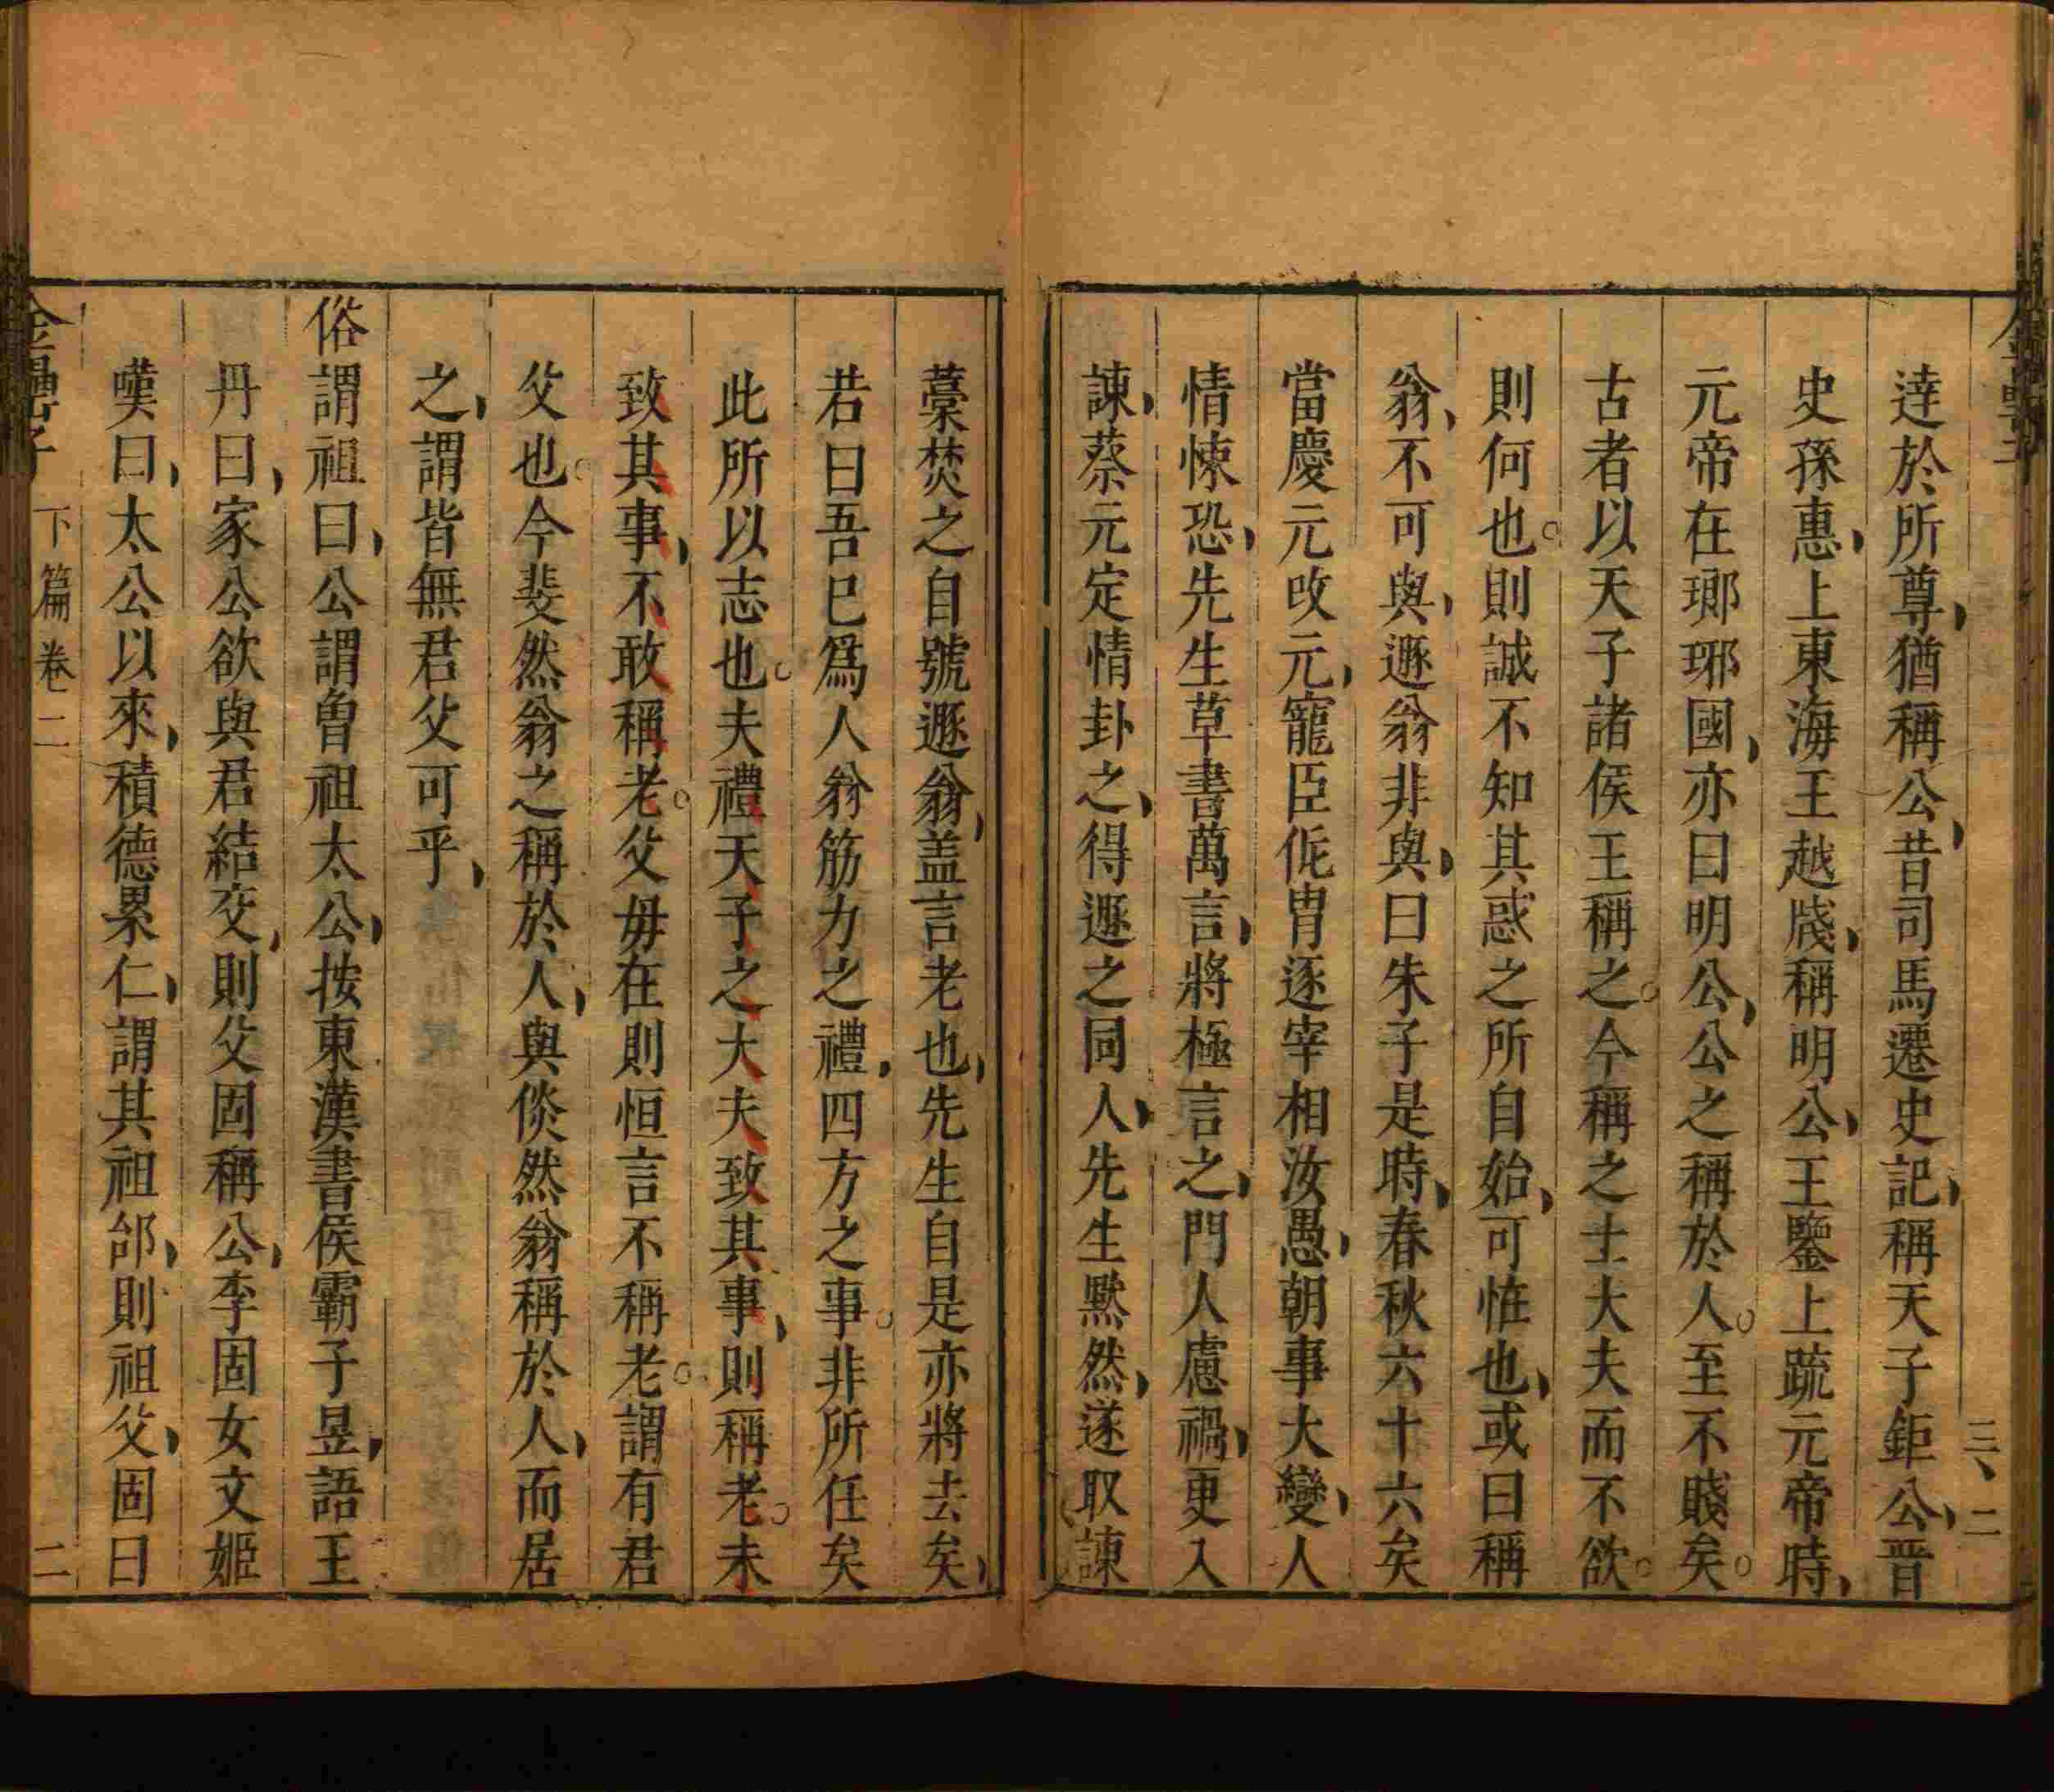 達於所尊、猶稱公、昔司馬遷史記、稱天子鉅公、晋
史孫惠、上東海王越牋、稱明公、王鑒上疏元帝時、
元帝在瑯琊國、亦曰明公、公之稱於人。至不賤矣。
古者以天子諸侯王稱之。今稱之士大夫而不欲。
則何也。則誠不知其惑之所自始、可怪也、或曰稱
翁、不可與、遯翁非與、曰朱子是時、春秋六十六矣
當慶元改元、寵臣侂冑逐宰相汝愚、朝事大變、人
情悚恐、先生草書萬言、將極言之、門人慮禍、更入
諫、蔡元定情卦之、得遯之同人、先生默然、遂取諫
藁焚之自號遯翁、盖言老也、先生自是亦將去矣、
若曰吾已爲人翁筋力之禮、四方之事。非所任矣
此所以志也。夫禮天子之大夫致其事、則稱老。未
致其事、不敢稱老。父毋在則恒言不稱老。謂有君
父也。今斐然翁之稱於人、與倐然翁稱於人、而居
之、謂皆無君父可乎、
俗謂祖曰、公謂曾祖太公、按東漢書侯霸子昱、語王
丹曰、家公欲與君結交、則父固稱公、李固女文姬
嘆曰、太公以來、積德累仁、謂其祖郃、則祖父、固曰
金罍子 下篇卷二 二